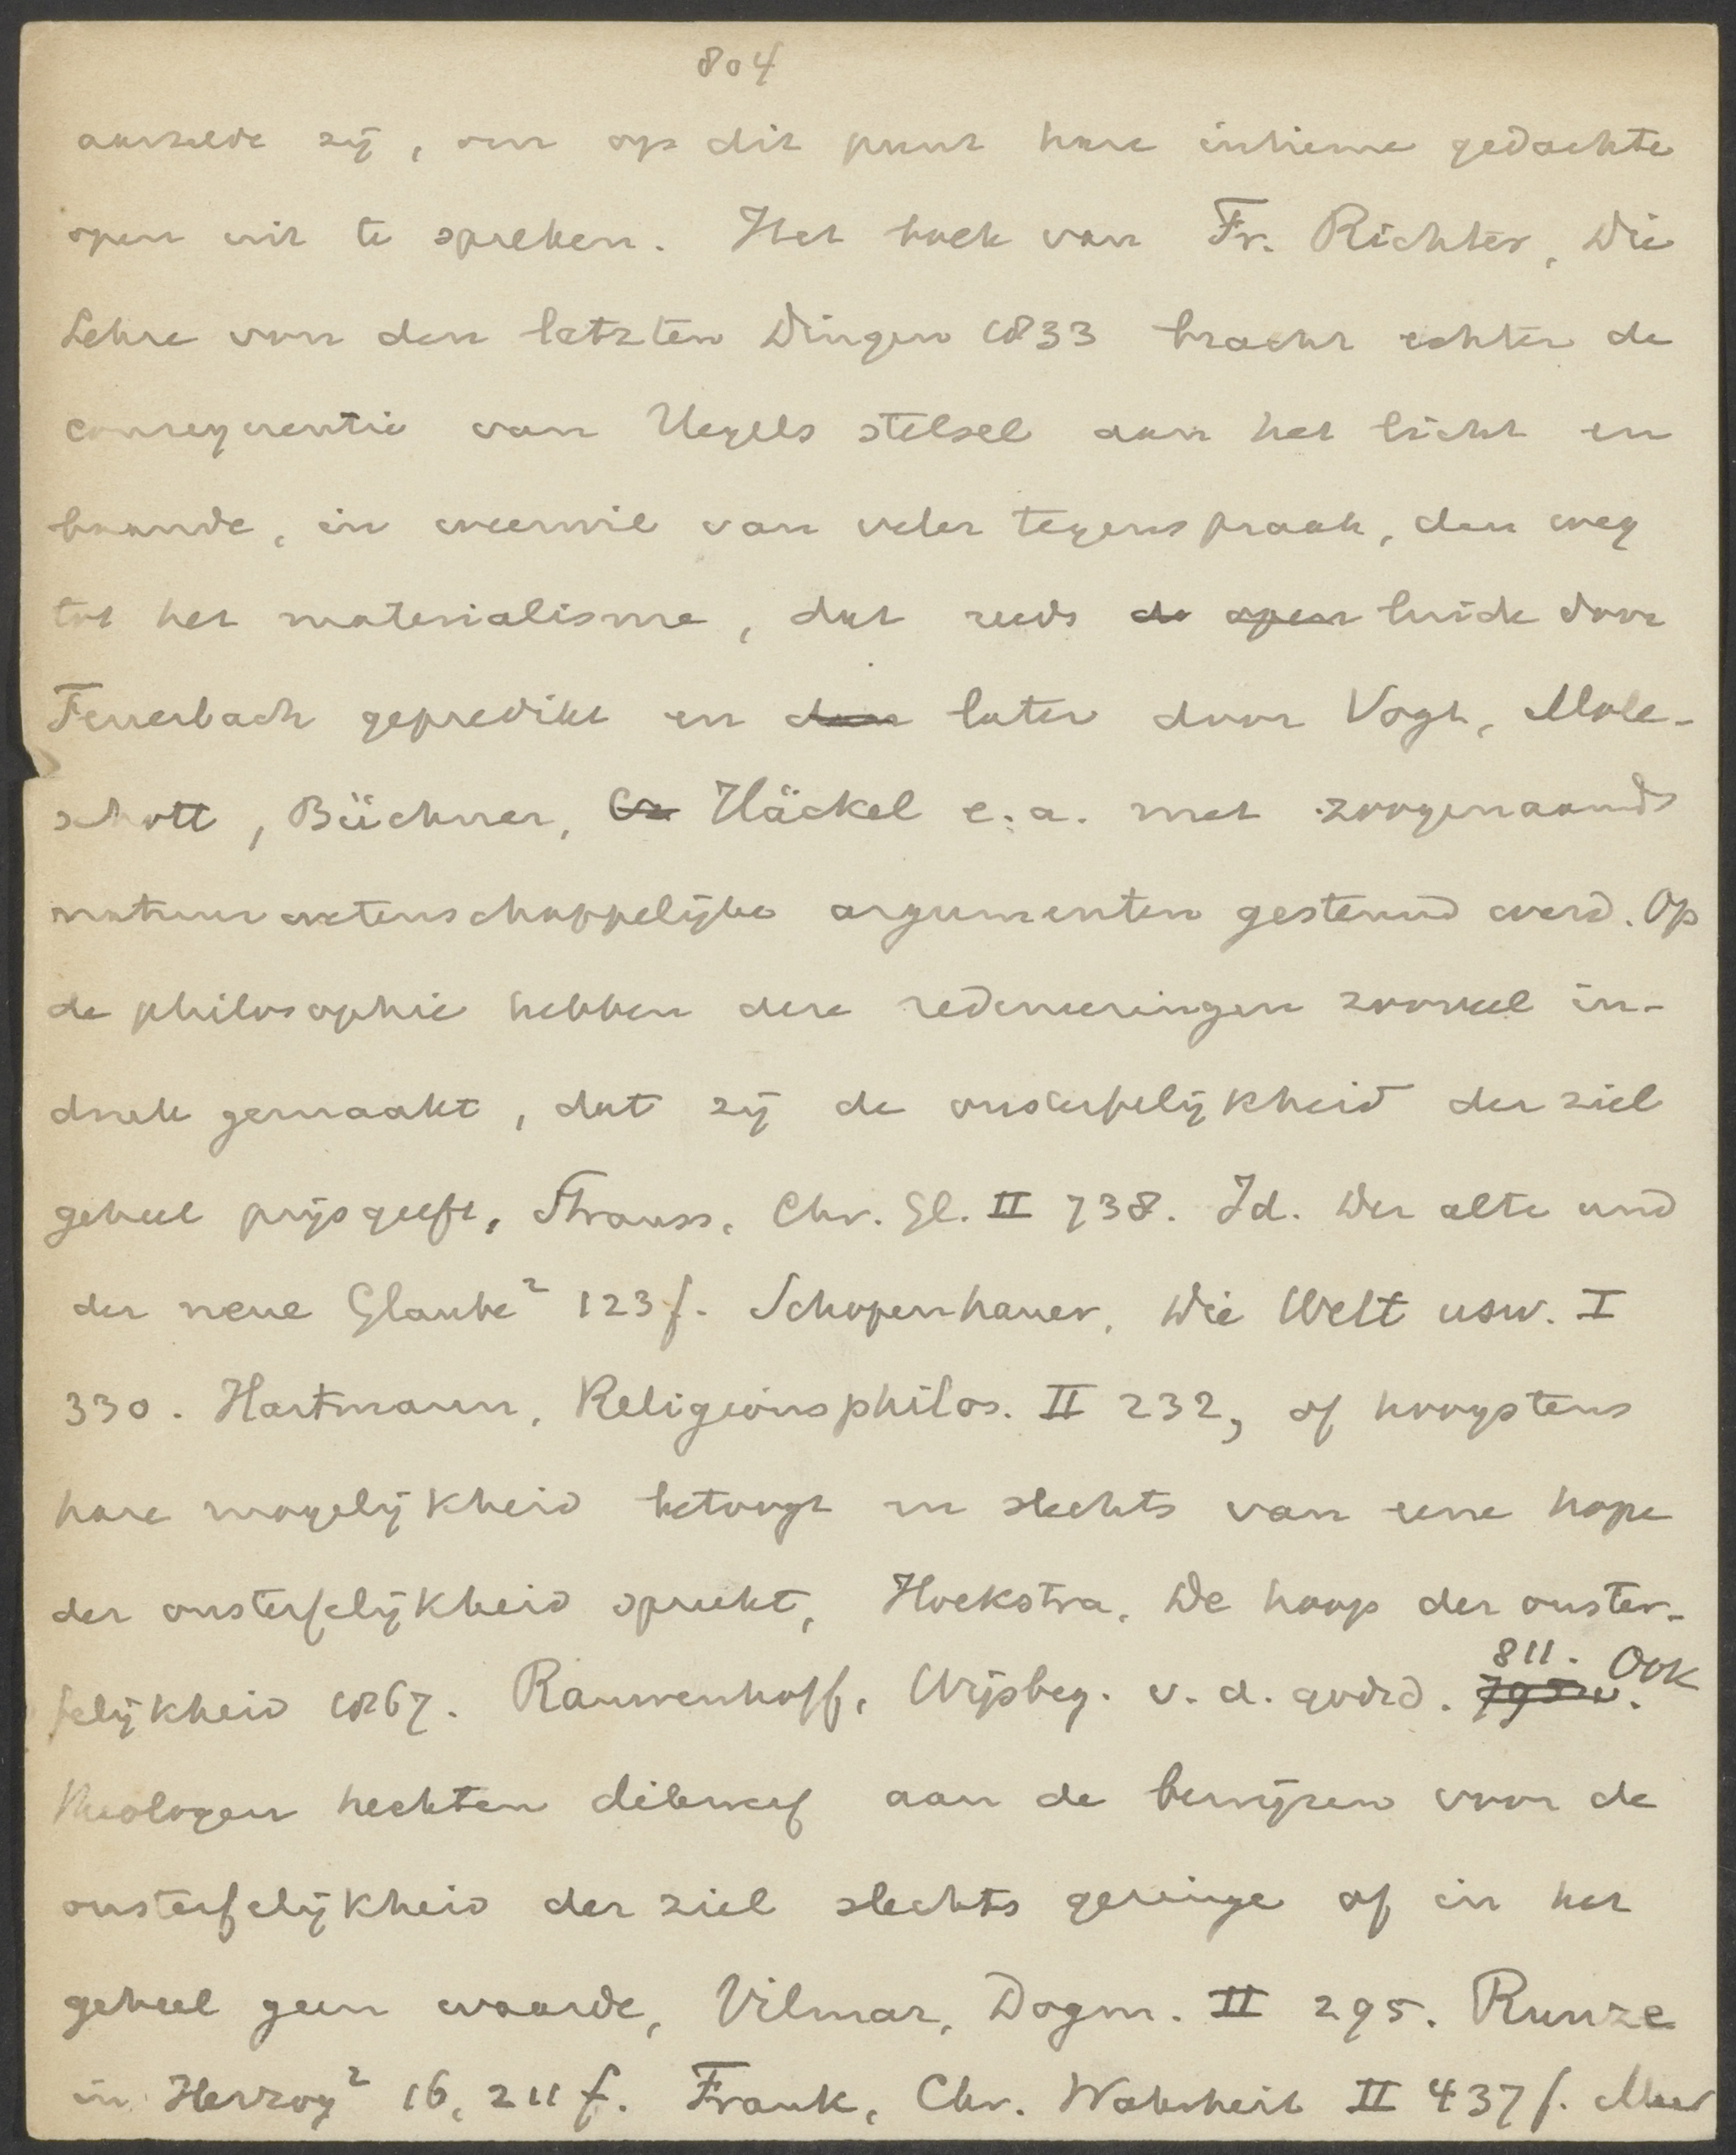 804
aarzelde zij, om op dit punt hare intieme gedachte
open uit te spreken. Het boek van Fr. Richter, Die
Lehre von den letzten Dingen 1833 bracht echter de
consequentie van Hegels stelsel aan het licht en
baande, in weerwil van veler tegenspraak, den weg
tot het materialisme, dat reeds de open luide door
Feuerbach gepredikt en door later door Vogt, Mole-
schott, Büchner, Häckel e.a. met zoogenaamd
natuurwetenschappelijke argumenten gesteund werd. Op
de philosophie hebben deze redeneeringen zooveel in-
druk gemaakt, dat zij de onsterfelijkheid der ziel
geheel prijsgeeft, Strauss, Chr. Gl. II 738. Id. Der alte und
der neue Glaube² 123 f. Schopenhauer, Die Welt usw. I
330. Hartmann, Religionsphilos. II 232, of hoogstens
hare mogelijkheid betoogt en slechts van eene hope
der onsterfelijkheid spreekt, Hoekstra, De hoop der onster-
felijkheid 1867. Rauwenhoff, Wijsbeg. v. d. godsd. 795v. 811. Ook
theologen hechten dikwerf aan de bewijzen voor de
onsterfelijkheid der ziel slechts geringe of in het
geheel geen waarde, Vilmar, Dogm. II 295. Runze
in Herzog² 16, 211 f. Frank, Chr. Wahrheit II 437 f. Meer